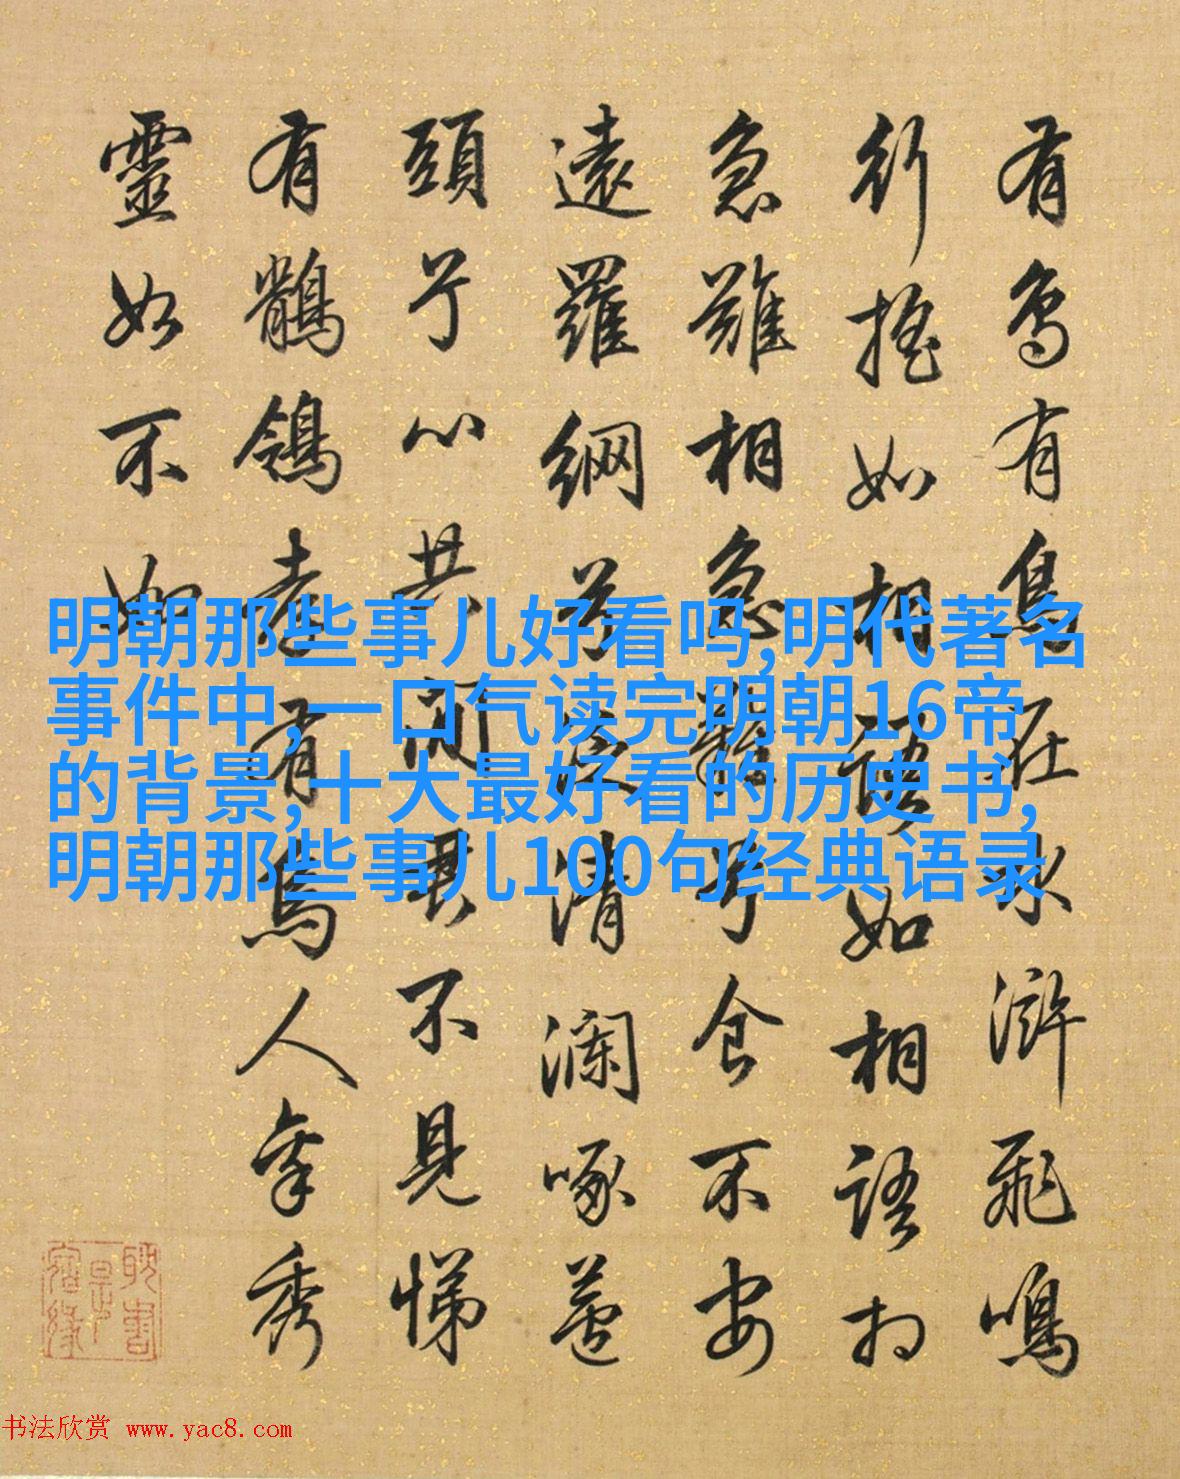 有鳥有鳥在水滸飛鳴
行搖如相語如相語
急難相急難兮食不安
遠羅網兮清瀾啄
頭兮心共間君不見悌
有鶺鴒孝有烏人秀
靈如不如
明朝那些事儿好看吗,明代著名
事件中,一口气读完明朝16帝
的背景,十大最好看的历史书,
明朝那些事儿100句经典语录
书法欣赏 www.yac8.com